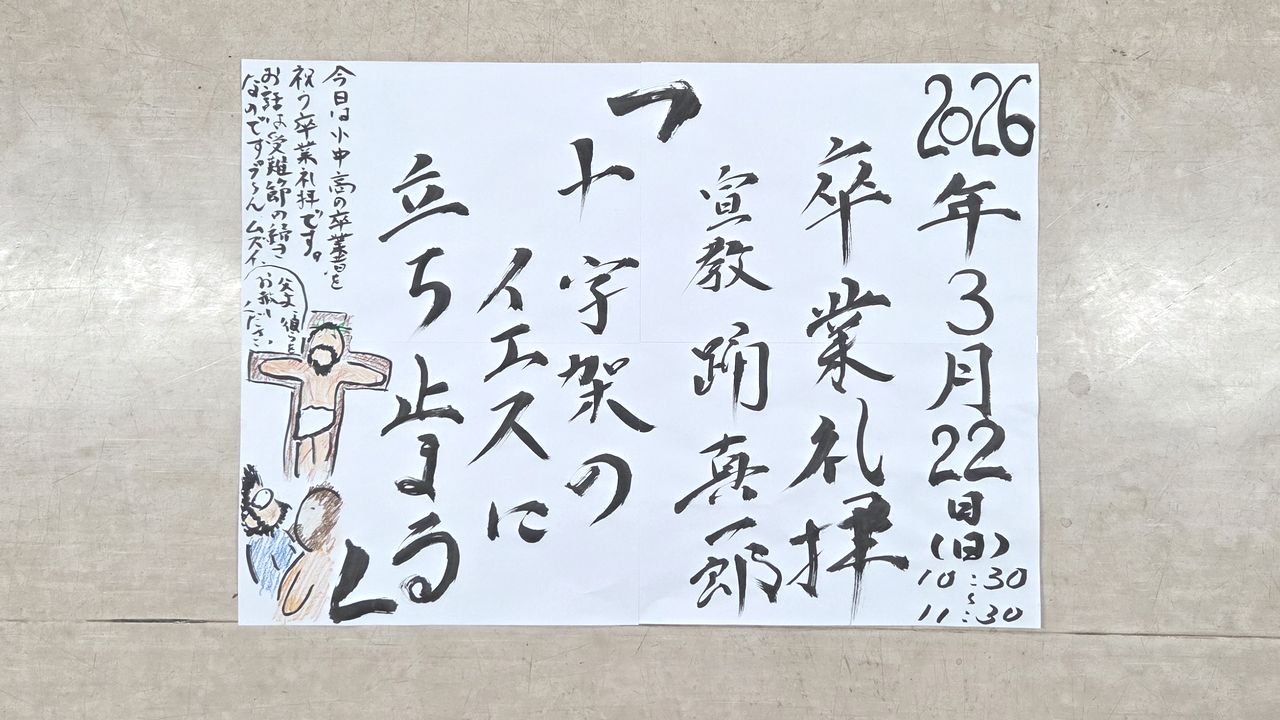 2026年3月22日(日)
10:30~11:30
卒業礼拝
宣教 踊真一郎
「十字架の
イエスに
立ち止まる」
今日は小中高の卒業者を
祝う卒業礼拝です。
お話は受難節の続き
なのですがうーんムズイ、
父よ、
お赦し
ください